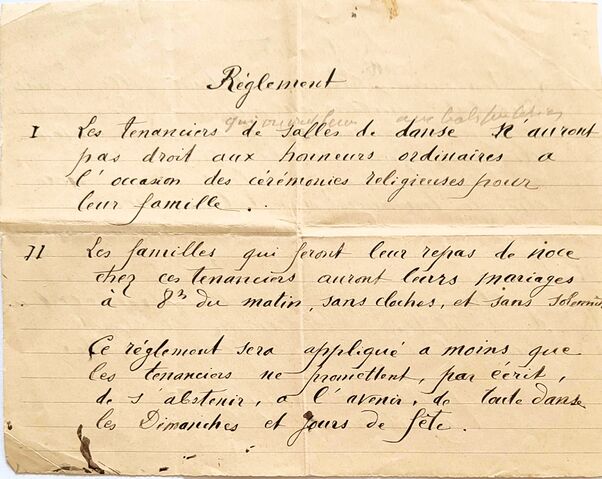 Réglement
qui ouvrent leur aux bals publics
I Les tenanciers de salles de danse n'auront
pas droit aux honneurs ordinaires a
l'occasion des cérémonies religieuses pour
leur famille.
II Les familles qui feront leur repas de noce
chez ces tenanciers auront leurs mariages
à 8h du matin, sans cloches, et sans solennité
Ce réglement sera appliqué a moins que
les tenanciers ne promettent, par écrit,
de s'abstenir, a l'avenir, de toute danse
les Dimanches et jours de fête.